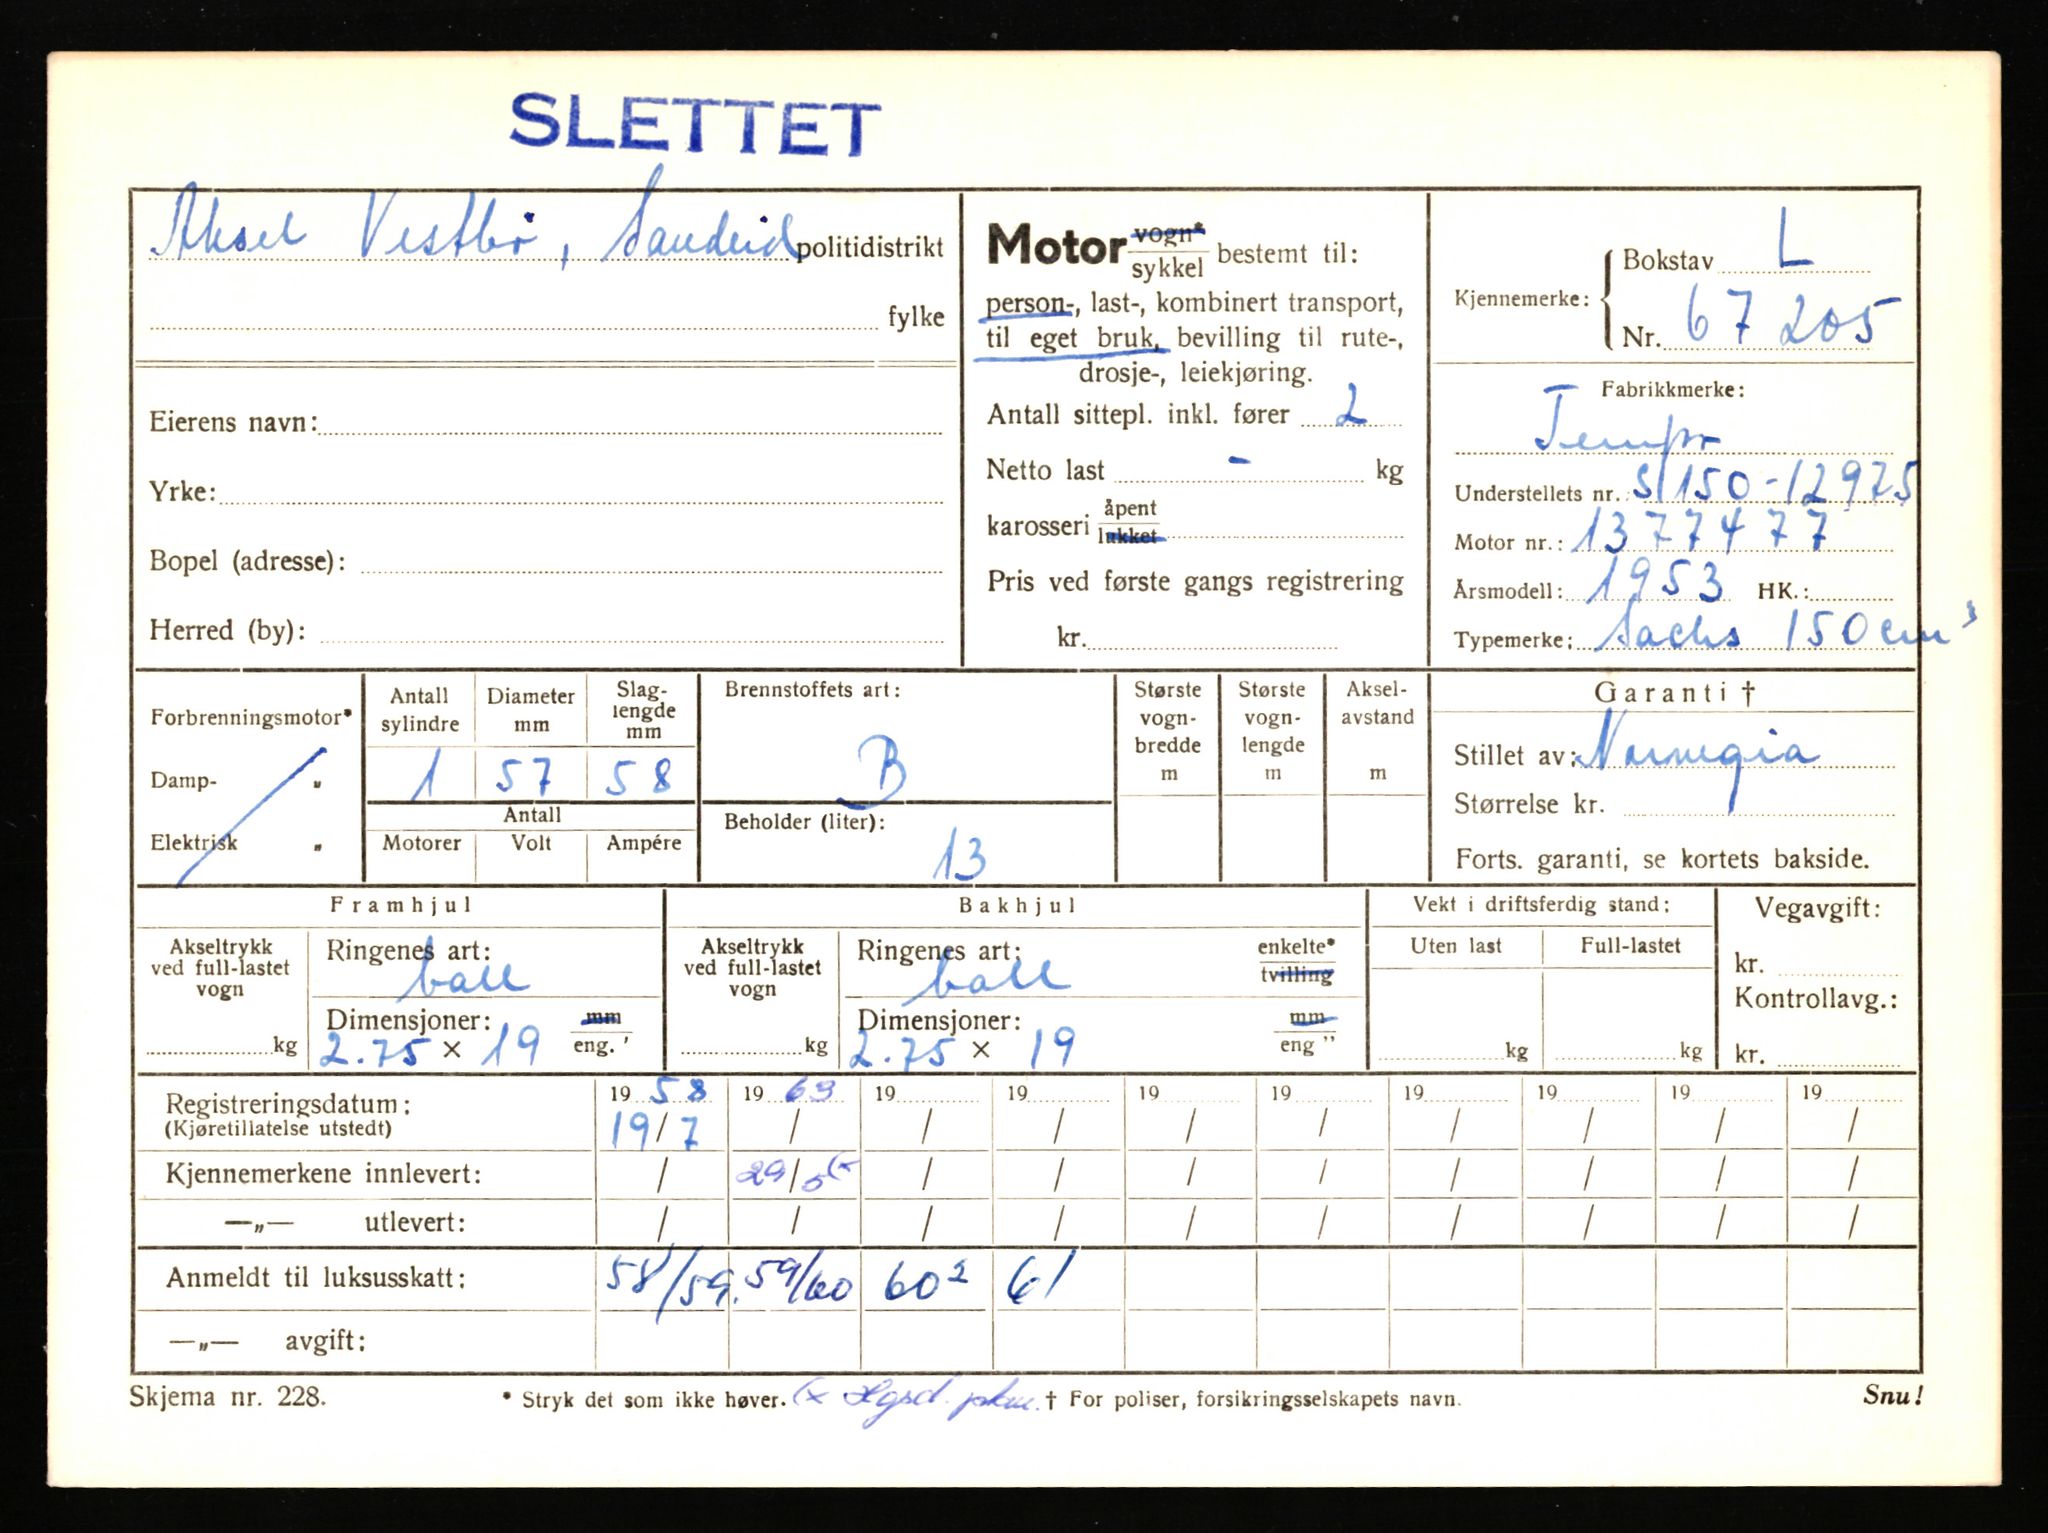 SLETTET
Aksel Vestbø, Sandeid politidistrikt
fylke
Eierens navn:
Yrke:
Bopel (adresse):
Herred (by):
Motor vogn* / sykkel bestemt til:
person-, last-, kombinert transport,
til eget bruk, bevilling til rute-,
drosje-, leiekjøring.
Antall sittepl. inkl. fører 2
Netto last - kg
karosseri åpent / lukket
Pris ved første gangs registrering
kr.
Kjennemerke: Bokstav L
Nr. 67205
Fabrikkmerke:
Tempo
Understellets nr. S/150-12975
Motor nr.: 1377477
Årsmodell: 1953 HK.:
Typemerke: Sachs 150 cm³
Forbrenningsmotor*
Damp- „
Elektrisk „
Antall sylindre 1
Diameter mm 57
Slag-lengde mm 58
Antall
Motorer Volt Ampére
Brennstoffets art:
B
Beholder (liter):
13
Største vogn-bredde m
Største vogn-lengde m
Aksel-avstand m
Garanti †
Stillet av: Norwegia
Størrelse kr.
Forts. garanti, se kortets bakside.
Framhjul
Akseltrykk ved full-lastet vogn
kg
Ringenes art:
ball
Dimensjoner: mm / eng. '
2.75 × 19
Bakhjul
Akseltrykk ved full-lastet vogn
kg
Ringenes art: enkelte* / tvilling
ball
Dimensjoner: mm / eng "
2.75 × 19
Vekt i driftsferdig stand:
Uten last Full-lastet
kg kg
Vegavgift:
kr.
Kontrollavg.:
kr.
19 58 19 63 19 19 19 19 19 19 19 19
Registreringsdatum: 19/7 / / / / / / / / /
(Kjøretillatelse utstedt)
Kjennemerkene innlevert: / 29/5 (× / / / / / / / /
—„— utlevert: / / / / / / / / / /
Anmeldt til luksusskatt: 58/59. 59/60 60² 61
—„— avgift:
Skjema nr. 228. * Stryk det som ikke høver. (× † For poliser, forsikringsselskapets navn. Snu!